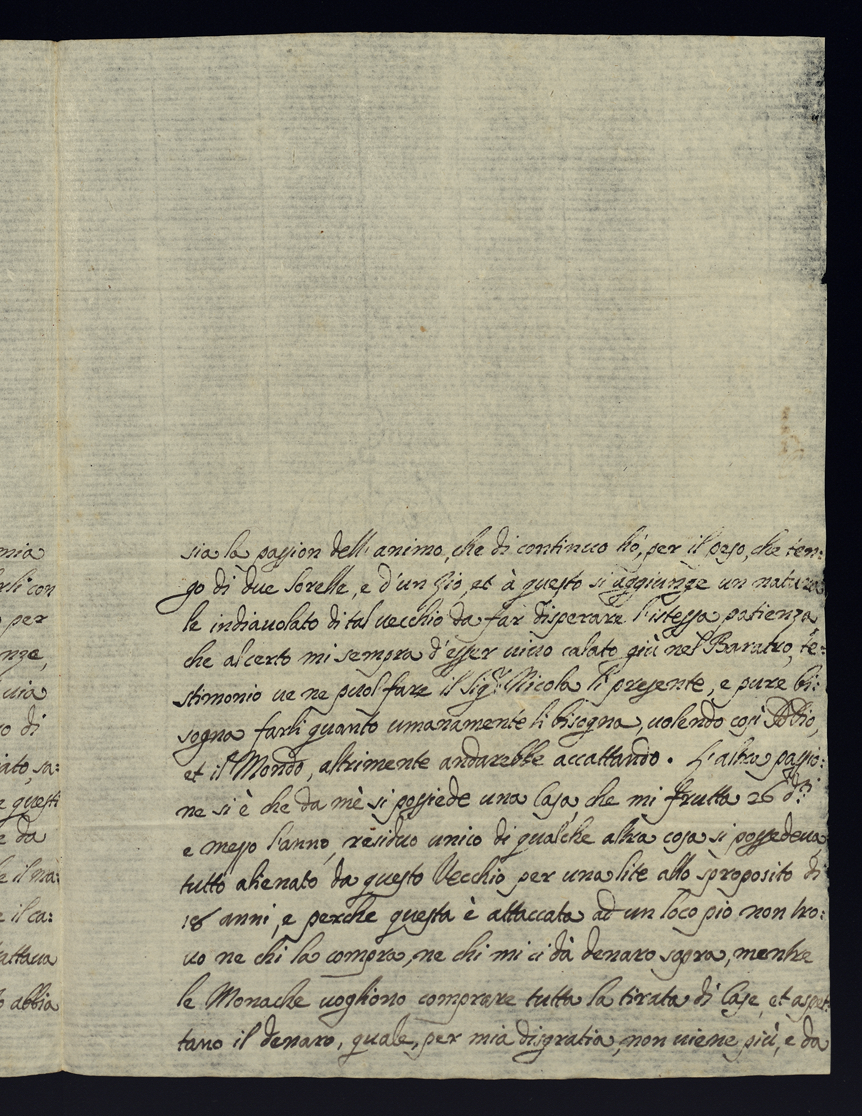 mia
rsi con
per
nze,
uia
o di
iato, sa:
e questi
e da
e il na:
e il ca:
attaua
o abbia
sia la passion dell'animo, che di continuo hò, per il peso, che ten:
go di due sorelle, e d'un Zio, et à questo si aggiunge un natura
le indiauolato di tal uecchio da far disperare l'istessa patienza,
che al certo mi sempra d'esser uiuo calato giù nel Baratro, te:
stimonio ue ne puol fare il Sig.r Nicola lì presente, e pure bi:
sogna farli quanto umanamente li bisogna, uolendo così Iddio,
et il Mondo, altrimente andarebbe accattando. L'altra passio:
ne si è che da mè si possiede una Casa, che mi frutta 26 d.ti
e mezzo l'anno, residuo unico di qualche altra cosa si possedeua,
tutto alienato da questo Vecchio per una lite allo sproposito di
18 anni, e perche questa è attaccata ad un loco pio non tro:
uo ne chi la compra, ne chi mi ci dà denaro sopra, mentre
le Monache uogliono comprare tutta la tirata di Case, et aspet:
tano il denaro, quale, per mia disgratia, non uiene più, e da